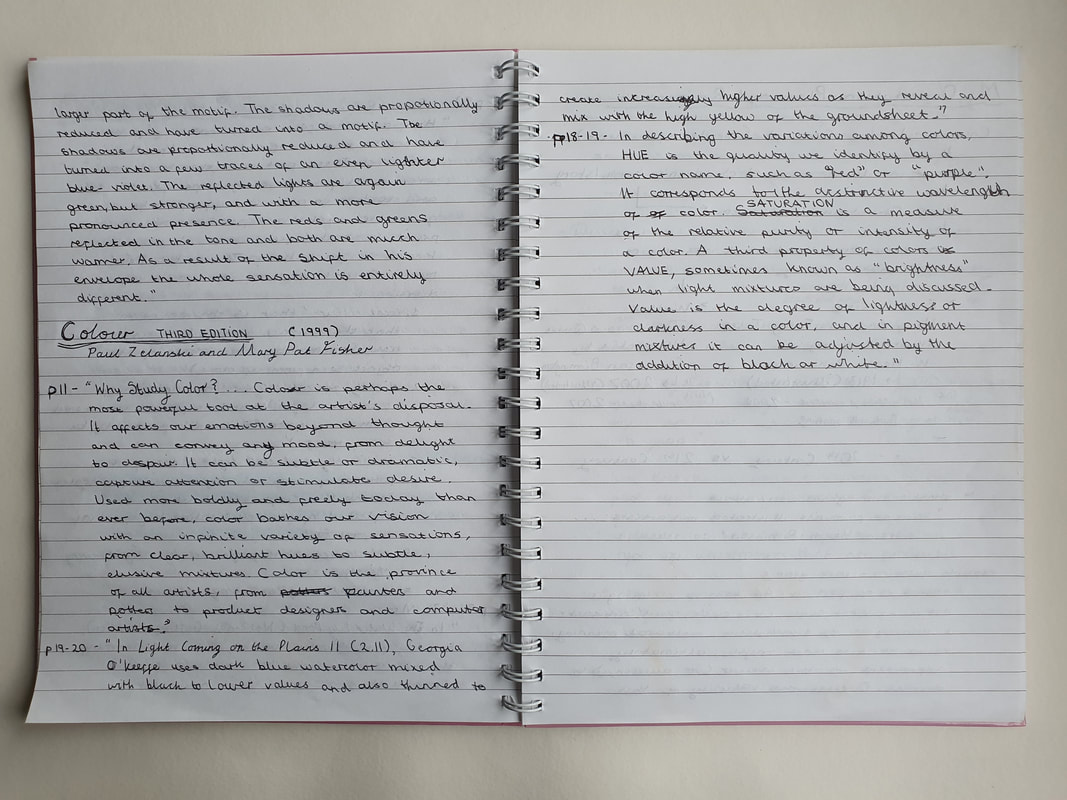 larger part of the motif. The shadows are propotionally
reduced and have turned into a motif. The
shadows are propotionally reduced and have
turned into a few traces of an even lighter
blue-violet. The reflected lights are again
green, but stronger, and with a more
pronounced presence. The reds and greens
reflected in the tone and both are much
warmer. As a result of the shift in his
envelope the whole sensation is entirely
different."
Colour THIRD EDITION (1999)
Paul Zelanski and Mary Pat Fisher
p11 - "Why Study Color? ... Colour is perhaps the
most powerful tool at the artist's disposal.
It affects our emotions beyond thought
and can convey any mood, from delight
to despair. It can be subtle or dramatic,
capture attention or stimulate desire.
Used more boldly and freely today than
ever before, color bathes our vision
with an infinite variety of sensations,
from clear, brilliant hues to subtle,
elusive mixtures. Color is the province
of all artists, from potters painters and
potters to product designers and computer
artists."
p19-20 - "In Light Coming on the Plains II (2.11), Georgia
O'keeffe uses dark blue watercolor mixed
with black to lower values and also thinned to
create increasingly higher values as they reveal and
mix with the high yellow of the groundsheet."
pp18-19 - In describing the variations among colors,
HUE is the quality we identify by a
color name, such as "red" or "purple".
It corresponds to the destinctive wavelength
of of color. Saturation SATURATION is a measure
of the relative purity or intensity of
a color. A third property of colors is
VALUE, sometimes known as "brightness"
when light mixtures are being discussed.
Value is the degree of lightness or
darkness in a color, and in pigment
mixtures it can be adjusted by the
addition of black or white."